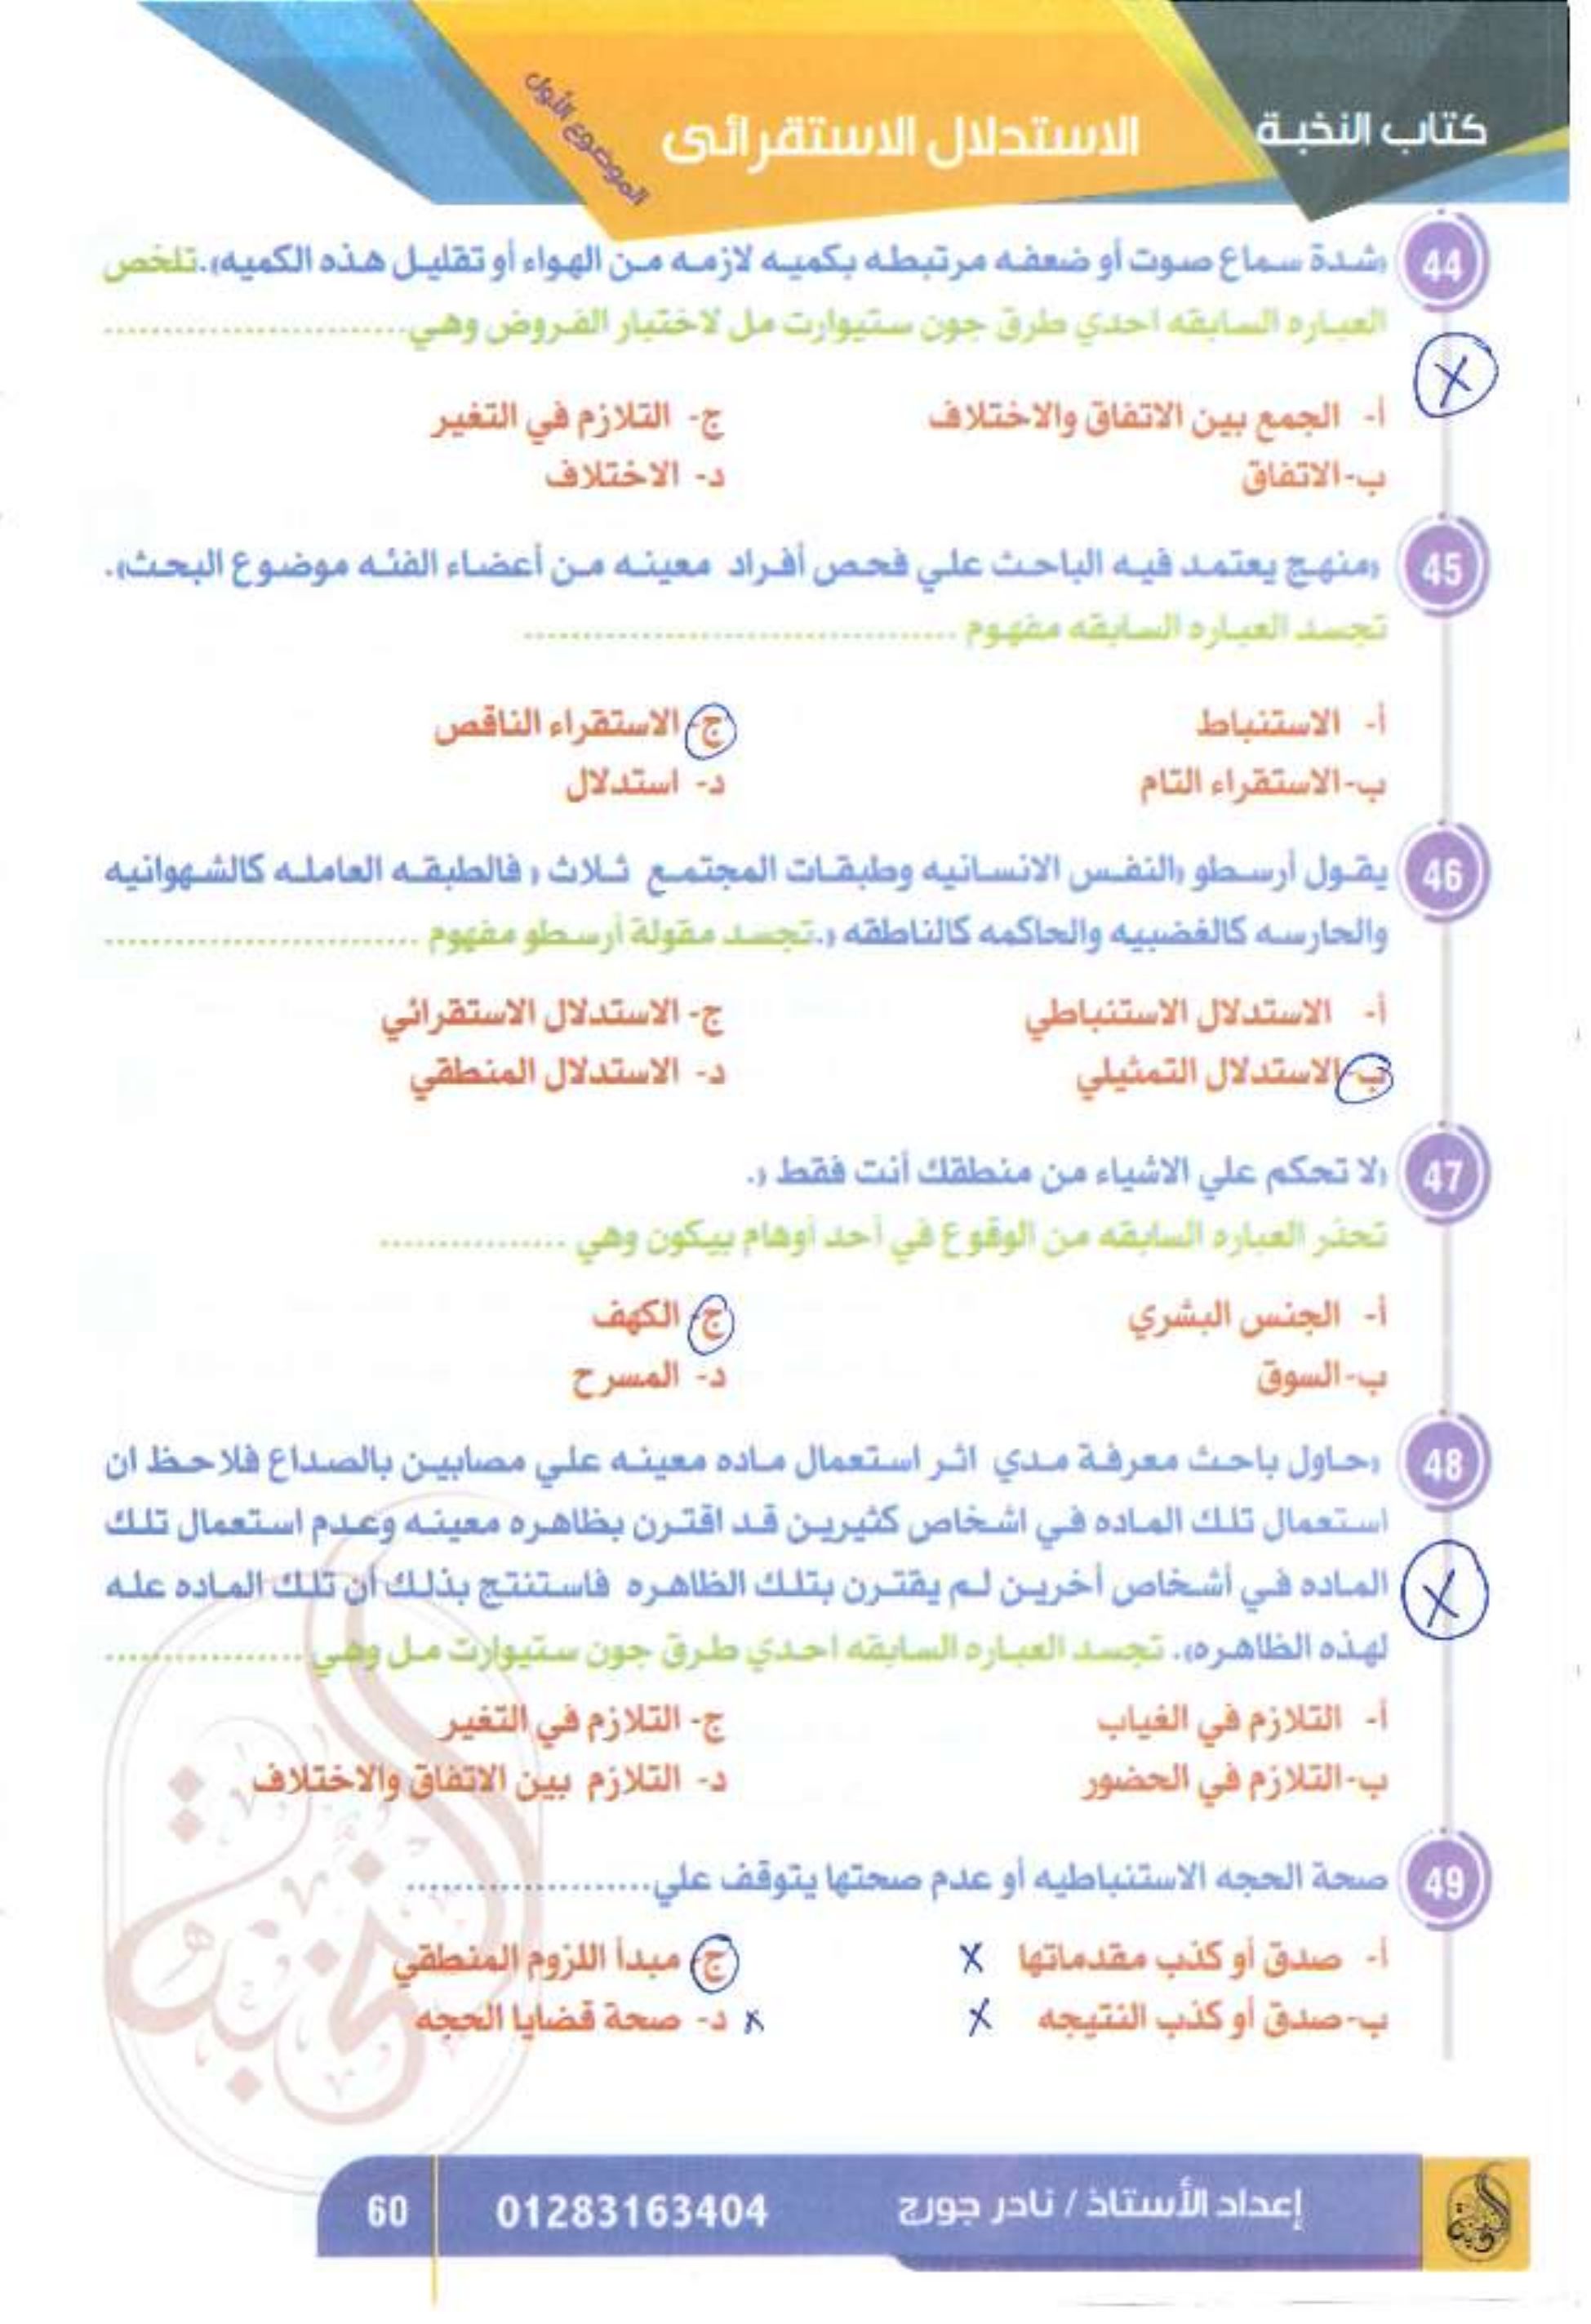 كتاب النخبة
الاستدلال الاستقرائى
الموضوع الأول
44 «شدة سماع صوت أو ضعفه مرتبطه بكميه لازمه من الهواء أو تقليل هذه الكميه». تلخص
العباره السابقه احدي طرق جون ستيوارت مل لاختبار الفروض وهي..........................
X
أ- الجمع بين الاتفاق والاختلاف
ج- التلازم في التغير
ب-الاتفاق
د- الاختلاف
45 «منهج يعتمد فيه الباحث علي فحص أفراد معينه من أعضاء الفئه موضوع البحث».
تجسد العباره السابقه مفهوم .....................................
أ- الاستنباط
ج- الاستقراء الناقص
ب-الاستقراء التام
د- استدلال
46 يقول أرسطو «النفس الانسانيه وطبقات المجتمع ثلاث » فالطبقه العامله كالشهوانيه
والحارسه كالغضبيه والحاكمه كالناطقه «. تجسد مقولة أرسطو مفهوم ...........................
أ- الاستدلال الاستنباطي
ج- الاستدلال الاستقرائي
ب-الاستدلال التمثيلي
د- الاستدلال المنطقي
47 «لا تحكم علي الاشياء من منطقك أنت فقط ».
تحذر العباره السابقه من الوقوع في أحد أوهام بيكون وهي ................
أ- الجنس البشري
ج- الكهف
ب-السوق
د- المسرح
48 «حاول باحث معرفة مدي اثر استعمال ماده معينه علي مصابين بالصداع فلاحظ ان
استعمال تلك الماده في اشخاص كثيرين قد اقترن بظاهره معينه وعدم استعمال تلك
الماده في أشخاص أخرين لم يقترن بتلك الظاهره فاستنتج بذلك أن تلك الماده عله
X
لهذه الظاهره». تجسد العباره السابقه احدي طرق جون ستيوارت مل وهي .................
أ- التلازم في الغياب
ج- التلازم في التغير
ب-التلازم في الحضور
د- التلازم بين الاتفاق والاختلاف
49 صحة الحجه الاستنباطيه أو عدم صحتها يتوقف علي.....................
أ- صدق أو كذب مقدماتها X
ج- مبدأ اللزوم المنطقي
ب-صدق أو كذب النتيجه X
X د- صحة قضايا الحجه
النخبة
إعداد الأستاذ / نادر جورج
01283163404
60
النخبة